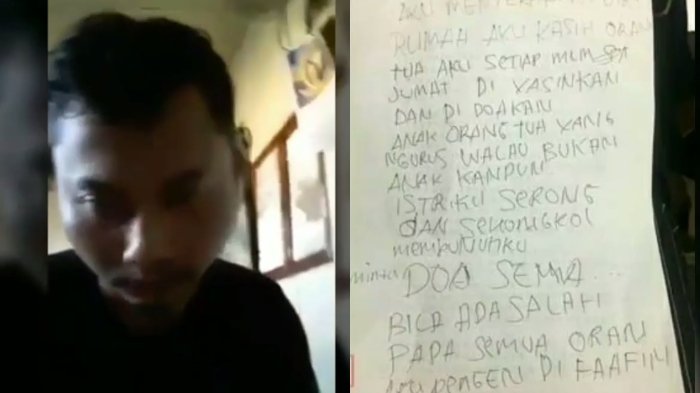 AKU MENYERAHKAN
RUMAH AKU KASIH ORANG
TUA AKU SETIAP MLM
JUMAT DI YASINKAN
DAN DI DOAKAN
ANAK ORANG TUA YANG
NGURUS WALAU BUKAN
ANAK KANDUN
ISTRIKU SERONG
DAN SEKONGKOL
MEMBUNUHKU
minta DOA SEMUA...
BILA ADA SALAH
PADA SEMUA ORAN
AKU PENGEN DI FAAFIN